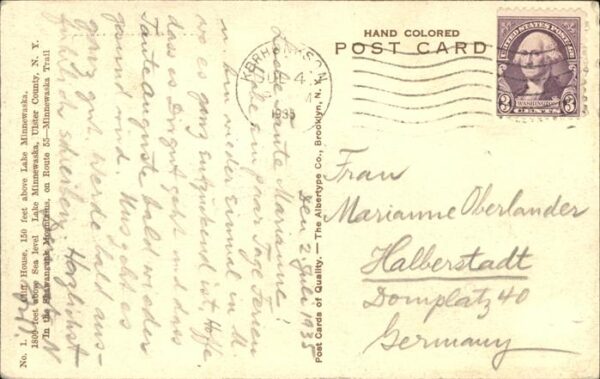 HAND COLORED
POST CARD
KERHONKSON
JUL 4
1935
UNITED STATES POSTAGE
WASHINGTON
3 CENTS 3
No. 1. Cliff House, 150 feet above Lake Minnewaska,
1800 feet above Sea level. Lake Minnewaska, Ulster County, N. Y.
In the Shawangunk Mountains, on Route 55—Minnewaska Trail
Post Cards of Quality. — The Albertype Co., Brooklyn, N. Y.
Den 2 Juli 1935
Liebe Tante Marianne!
ein paar Tage Ferien
wieder einmal in
wo es ganz entzückend ist. Hoffe,
dass es Dir gut geht und dass
Tante Auguste bald wieder
gesund wird. Uns geht es
ganz gut. Werde bald aus-
führlich schreiben. Herzlichst
Frau
Marianne Oberlander
Halberstadt
Domplatz 40
Germany